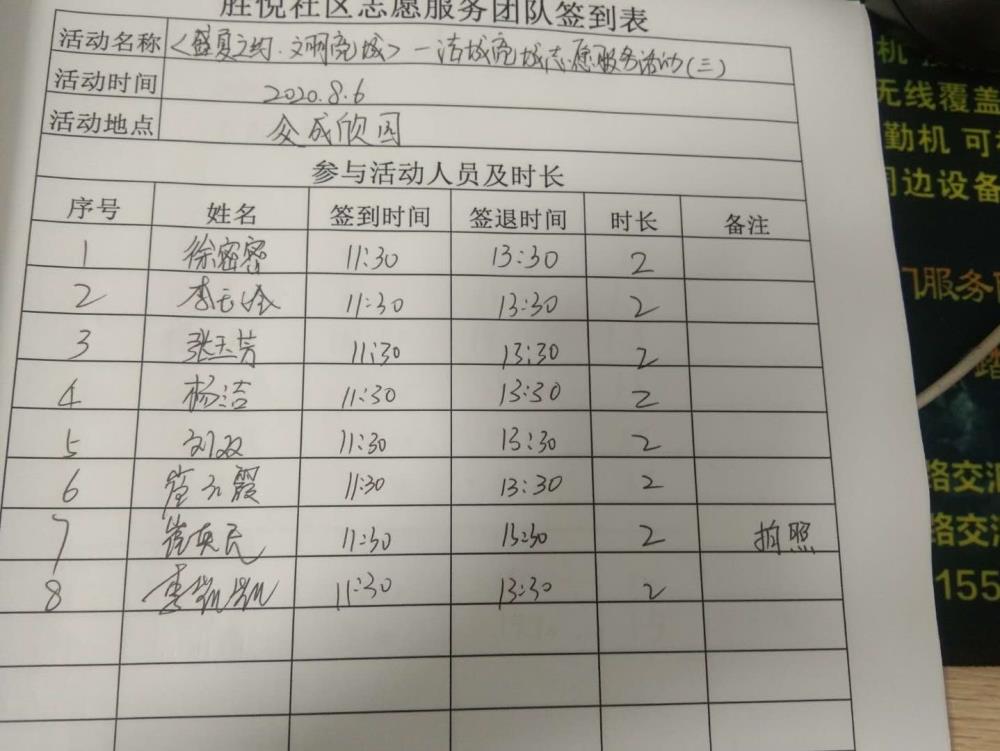 胜悦社区志愿服务团队签到表
活动名称 <盛夏之约·文明亮城>—洁城亮城志愿服务活动(三)
活动时间 2020.8.6
活动地点 众成欣园
参与活动人员及时长
序号 姓名 签到时间 签退时间 时长 备注
1 徐密密 11:30 13:30 2
2 李玉玲 11:30 13:30 2
3 张玉芳 11:30 13:30 2
4 杨洁 11:30 13:30 2
5 刘双 11:30 13:30 2
6 霞 11:30 13:30 2
7 民 11:30 13:30 2 拍照
8 李凯凯 11:30 13:30 2
机
无线覆盖
勤机 可
周边设备
门服务
路
路交
路交
155